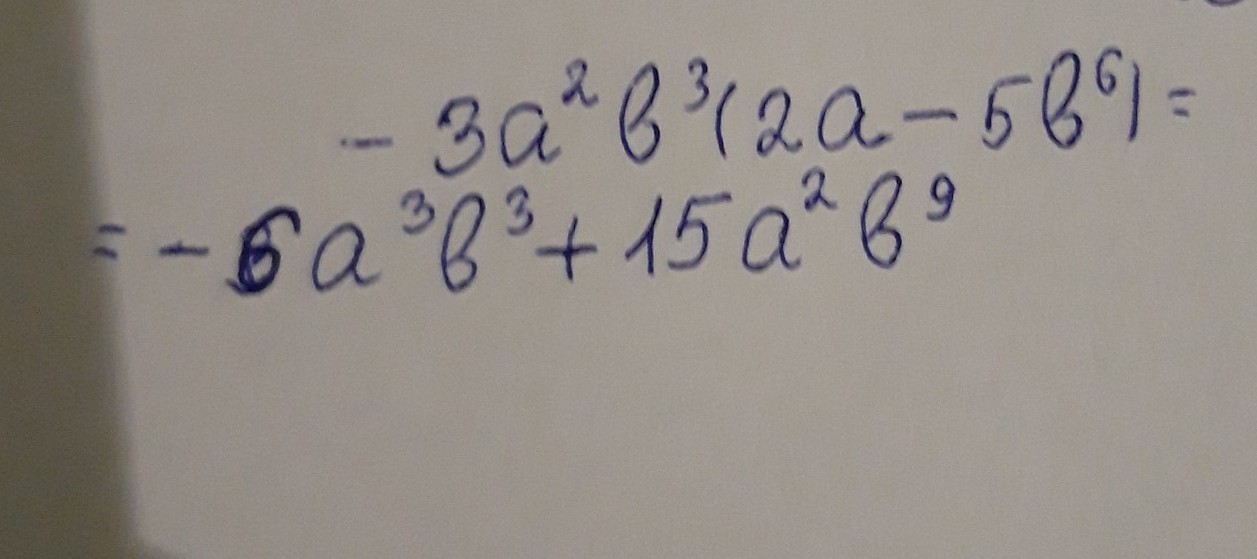 - 3a²b³(2a - 5b⁶) =
= - 6a³b³ + 15a²b⁹